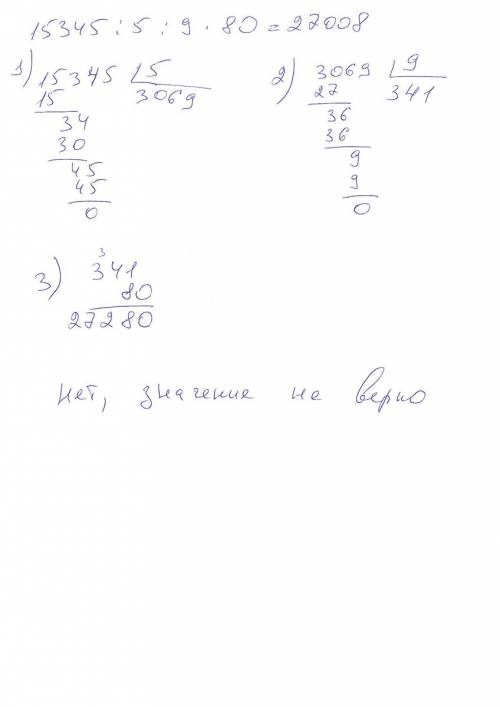 15345 : 5 : 9 · 80 = 27008
1) 15345 5
15 3069
34
30
45
45
0
2) 3069 9
27 341
36
36
9
9
0
3
3) 341
80
27280
нет, значение не верно